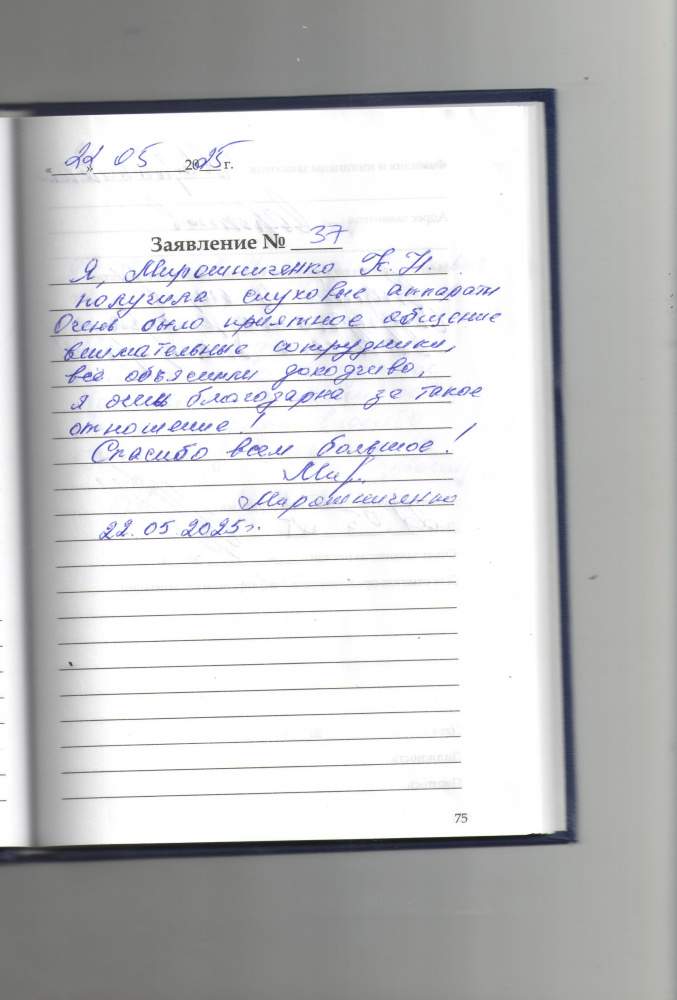 «22» 05 2025 г.
Заявление № 37
Я, Мирошниченко К. Н.
получила слуховые аппараты
Очень было приятное общение
внимательные сотрудники,
все объяснили доходчиво,
я очень благодарна за такое
отношение!
Спасибо всем большое!
Мир.
Мирошниченко
22.05.2025г.
75